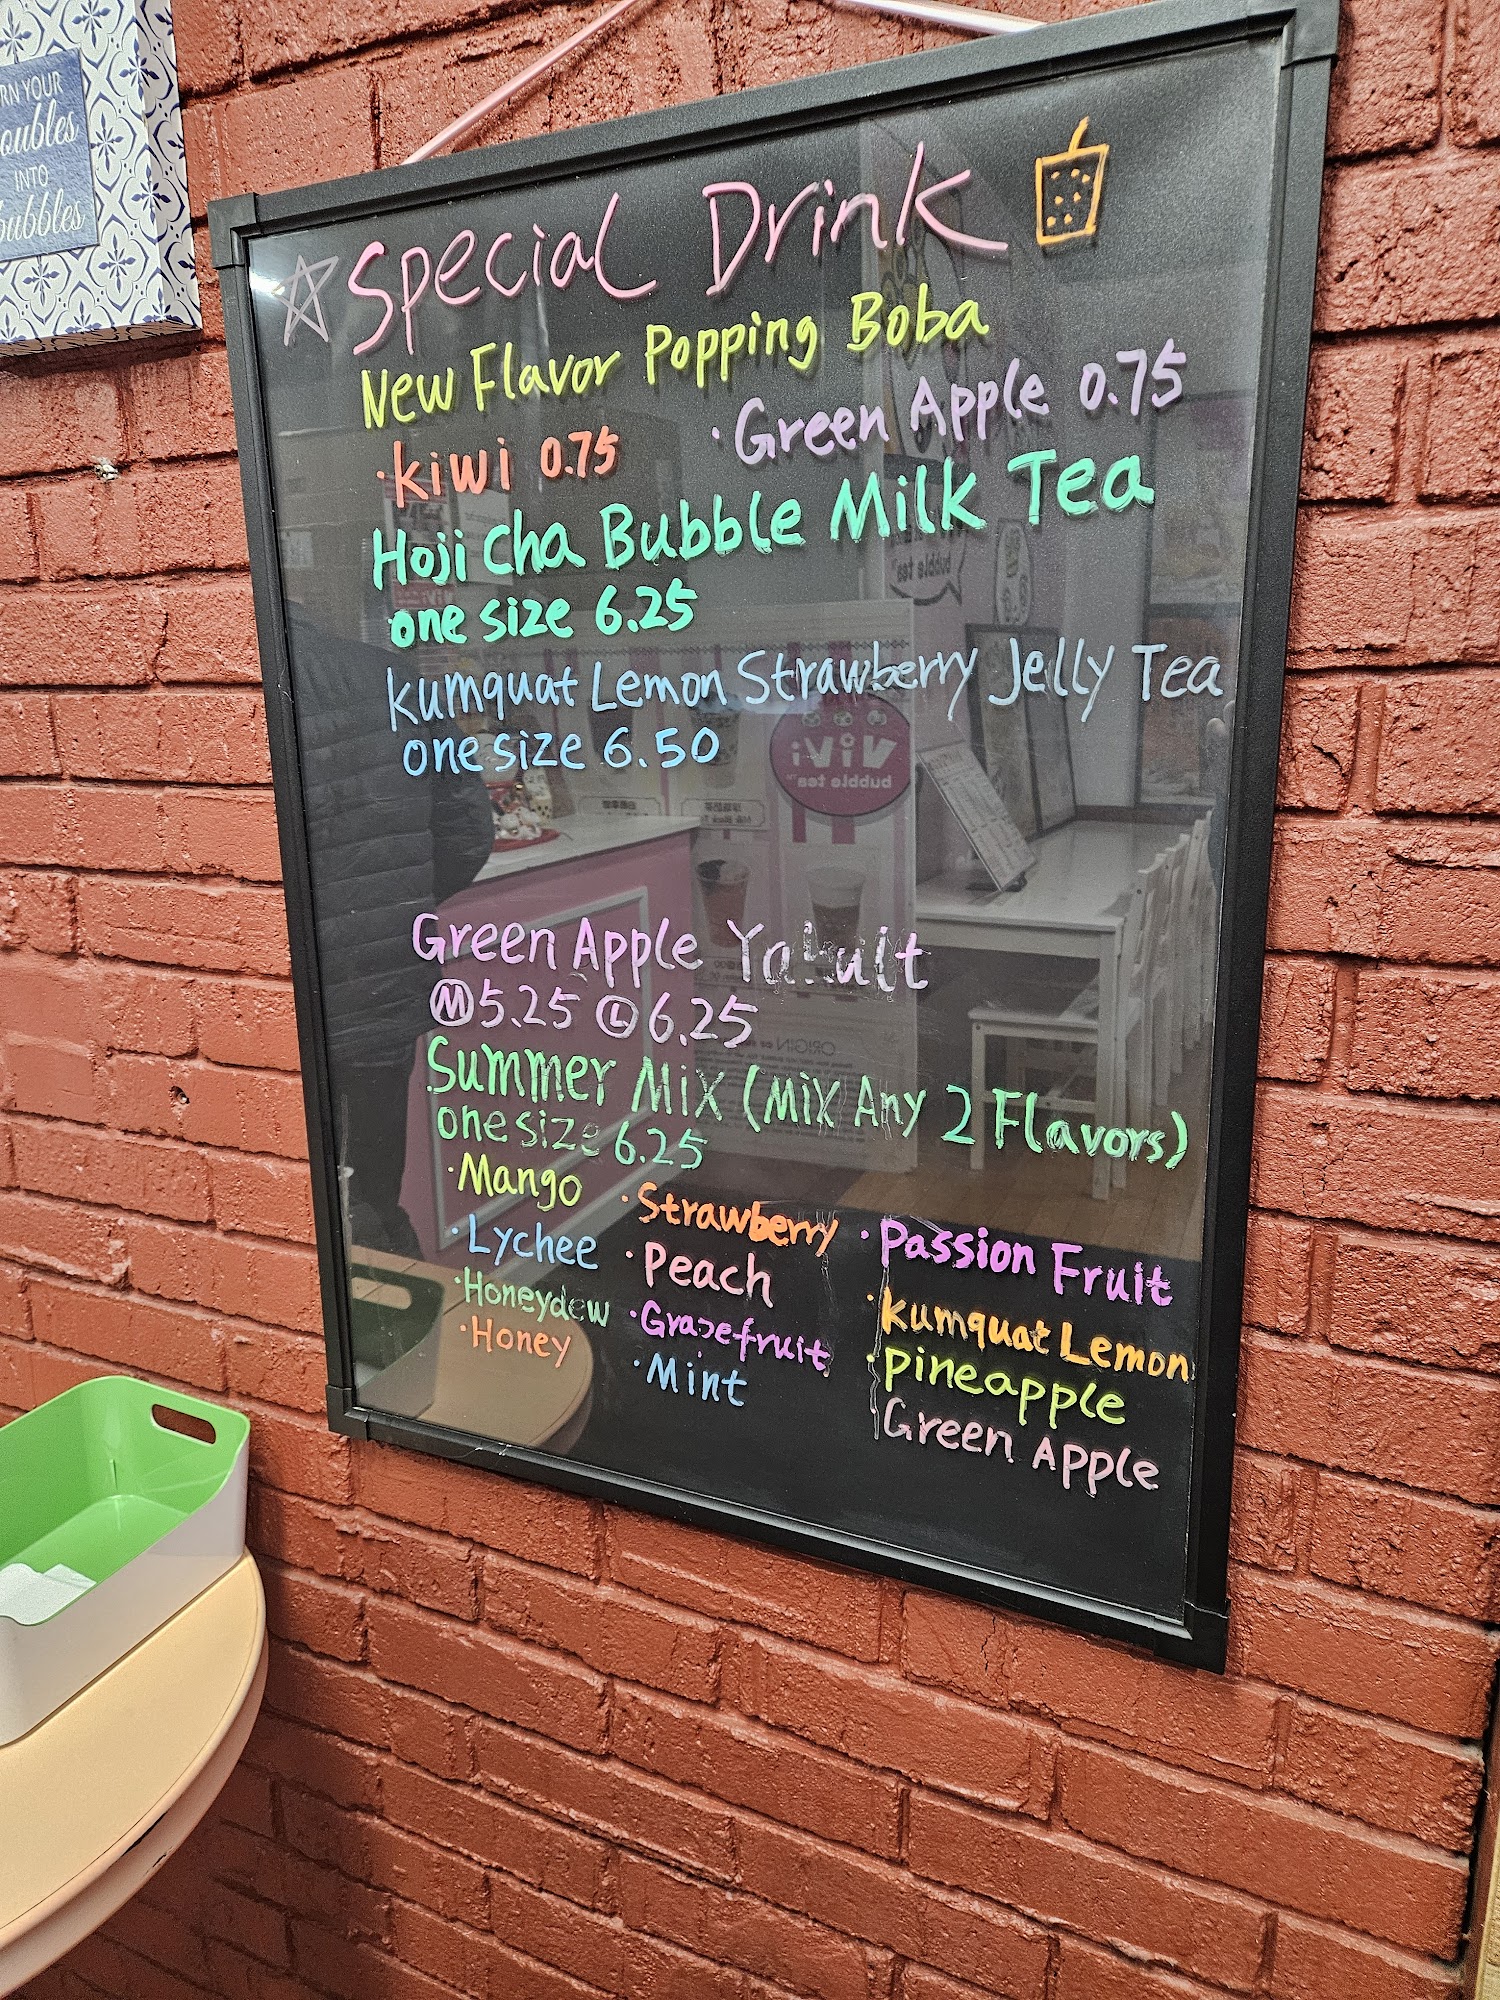 RN YOUR
oubles
INTO
ubbles
Special Drink
New Flavor Popping Boba
·kiwi 0.75 ·Green Apple 0.75
Hoji Cha Bubble Milk Tea
one size 6.25
kumquat Lemon Strawberry Jelly Tea
one size 6.50
ViVi
bubble tea
Green Apple Yakult
Ⓜ5.25 Ⓛ6.25
Summer Mix (Mix Any 2 Flavors)
one size 6.25
·Mango ·Strawberry ·Passion Fruit
·Lychee ·Peach ·kumquat Lemon
·Honeydew ·Grapefruit ·Pineapple
·Honey ·Mint Green Apple